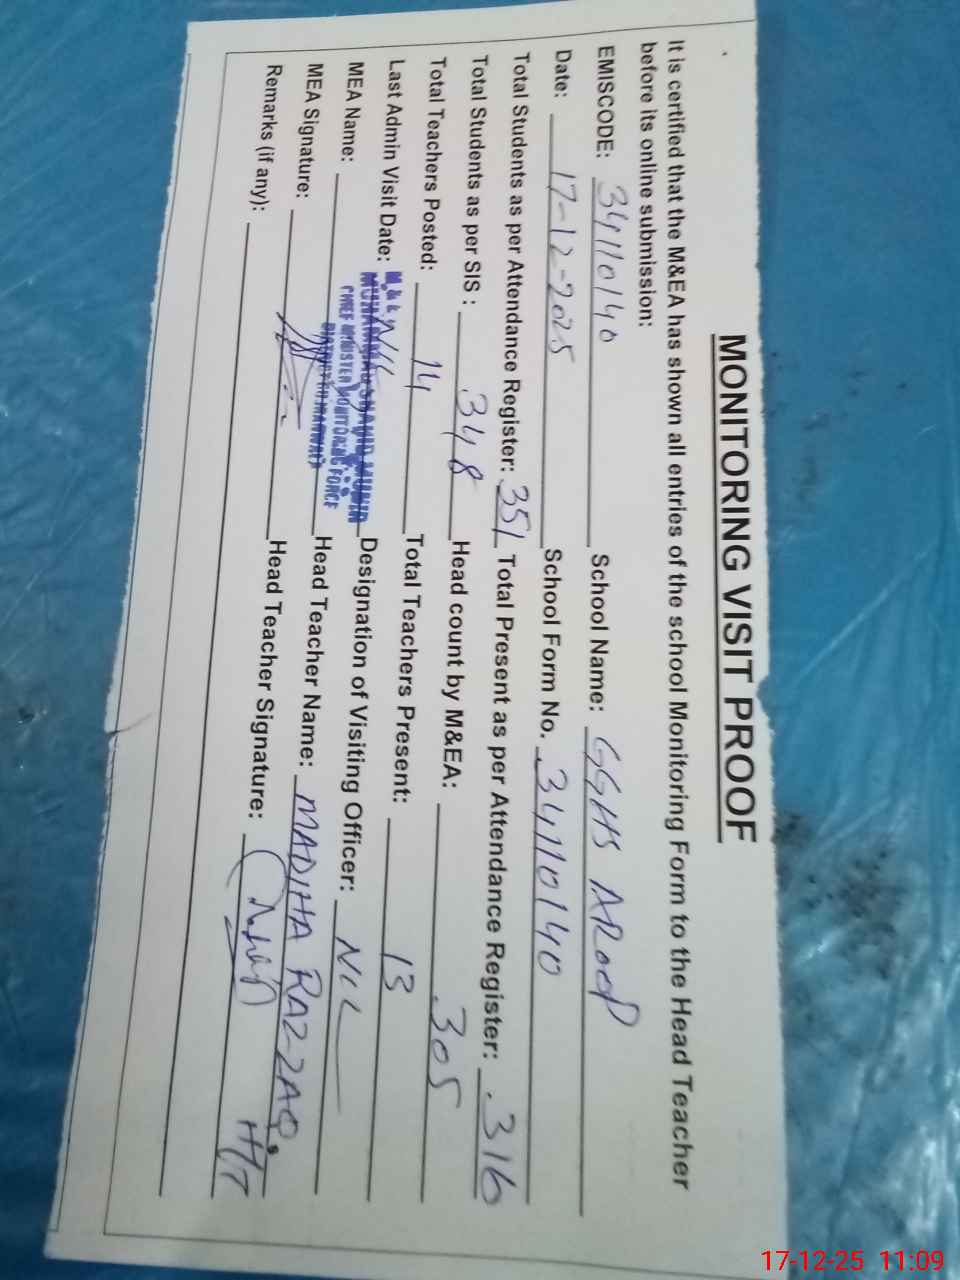 MONITORING VISIT PROOF
It is certified that the M&EA has shown all entries of the school Monitoring Form to the Head Teacher
before its online submission:
EMISCODE: 34110140 School Name: GGHS AROOP
Date: 17-12-2025 School Form No. 34110140
Total Students as per Attendance Register: 351 Total Present as per Attendance Register: 316
Total Students as per SIS : 348 Head count by M&EA: 305
Total Teachers Posted: 14 Total Teachers Present: 13
Last Admin Visit Date: NIL Designation of Visiting Officer: NIL
MEA Name: MUHAMMAD SHAHID MUNIR Head Teacher Name: MADIHA RAZZAQ
CHIEF MINISTER MONITORING FORCE
MEA Signature: Head Teacher Signature:
Remarks (if any):
17-12-25 11:09